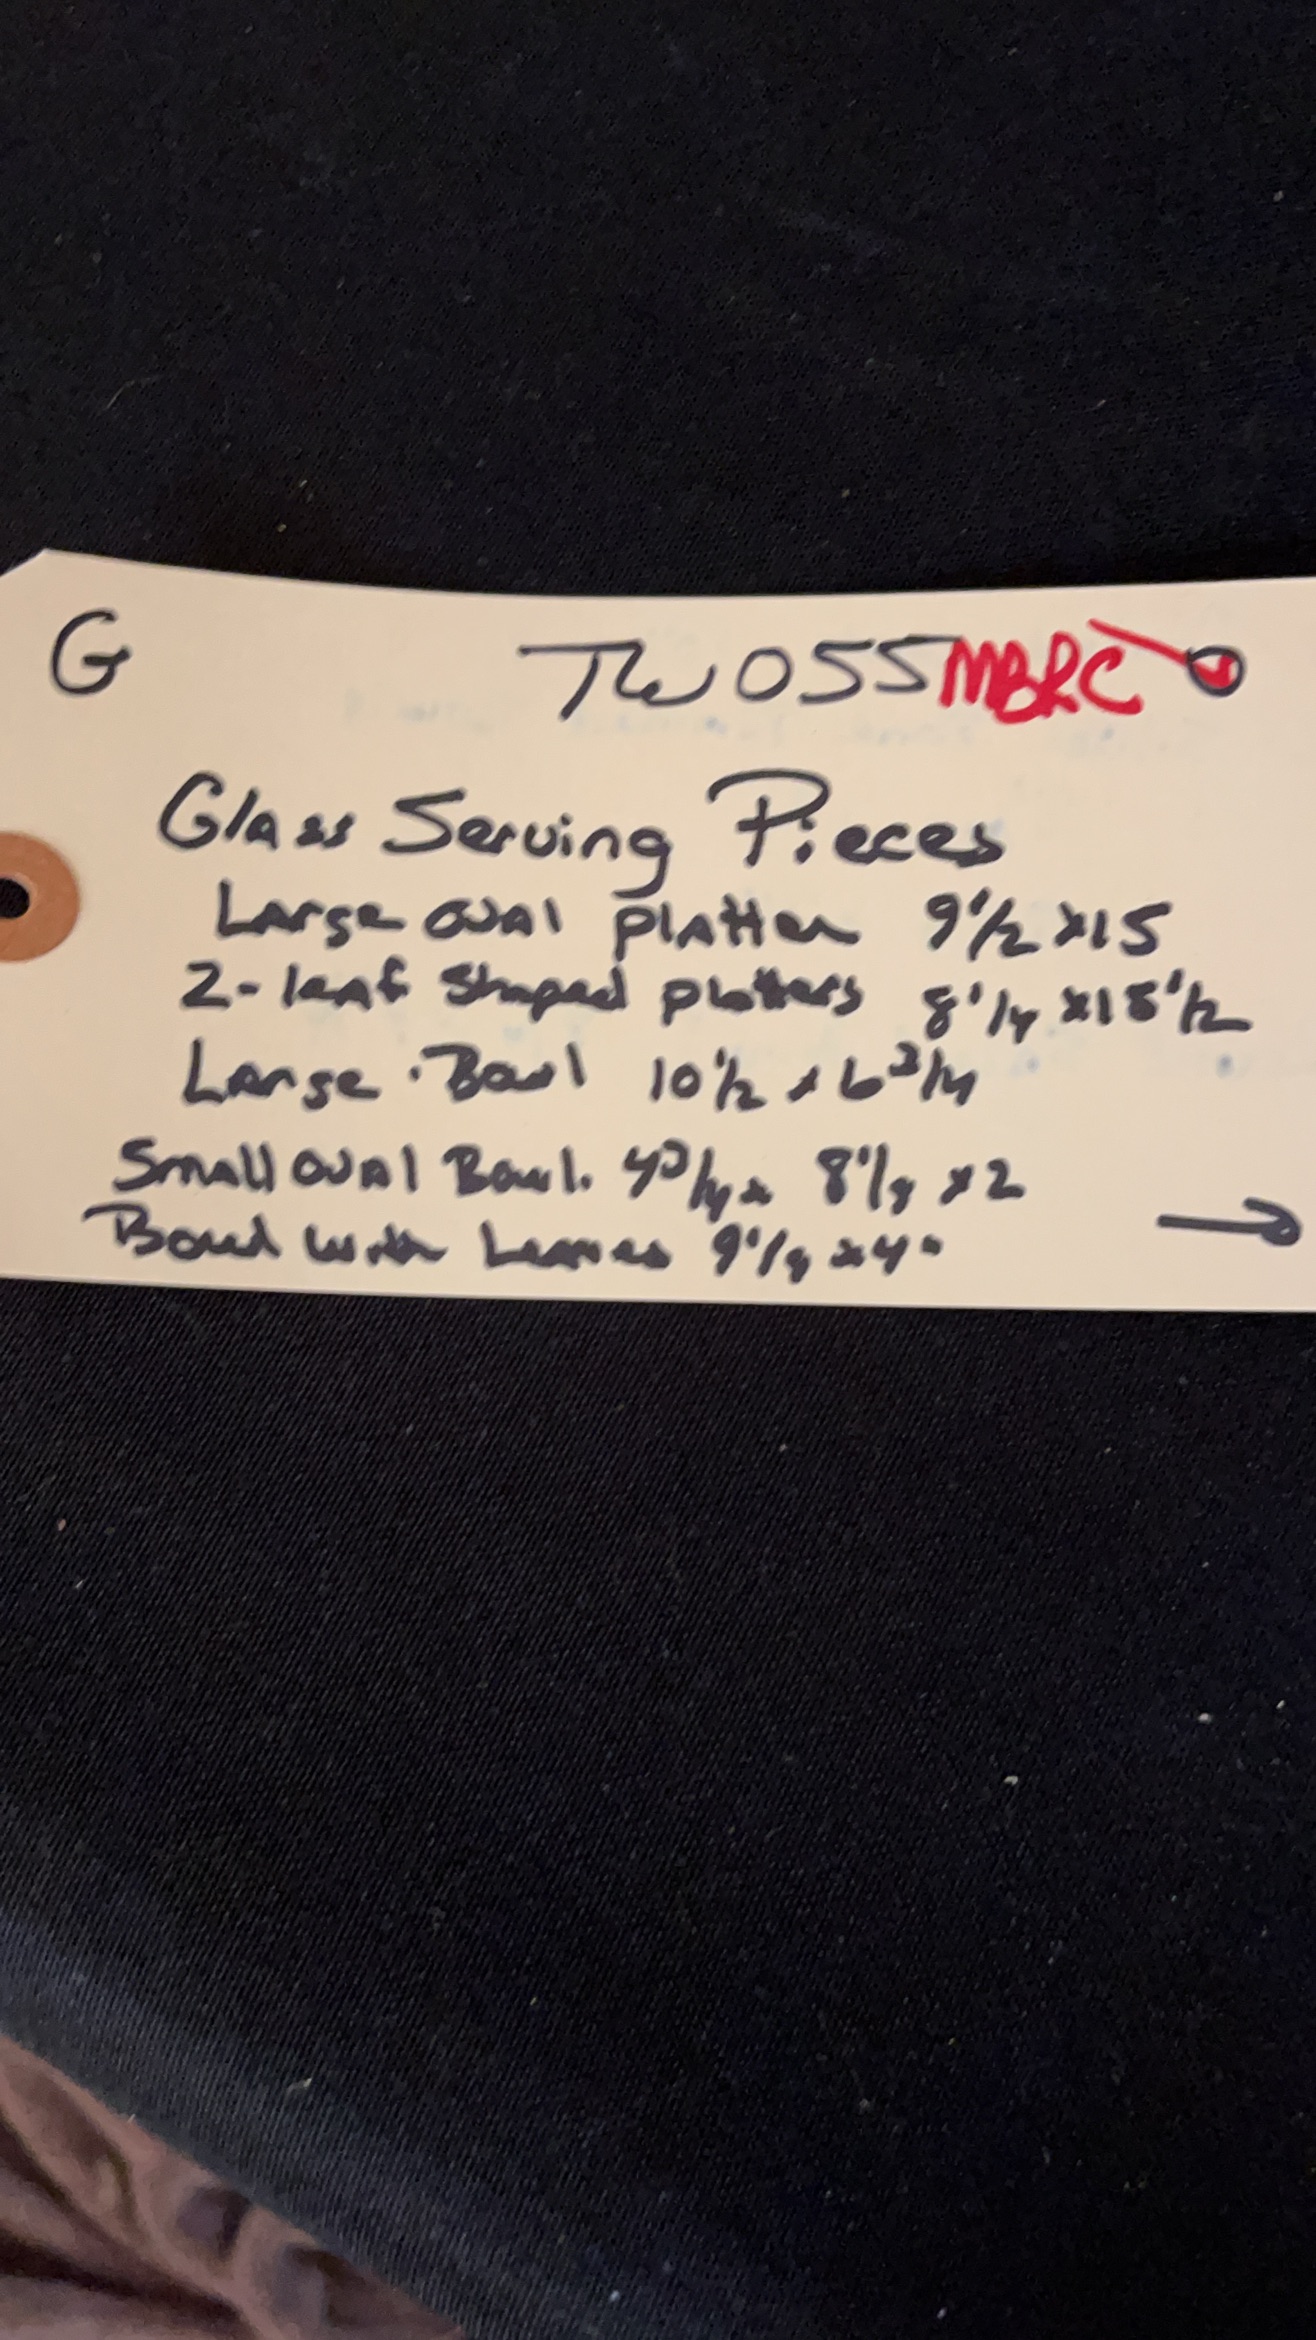 G TW 055 MBRC
Glass Serving Pieces
Large oval platter 9 1/2 x 15
2 - leaf shaped platters 8 1/4 x 15 1/2
Large Bowl 10 1/2 x 6 3/4
Small oval Bowl. 4 3/4 x 8 1/8 x 2
Bowl with Leaves 9 1/8 x 4"